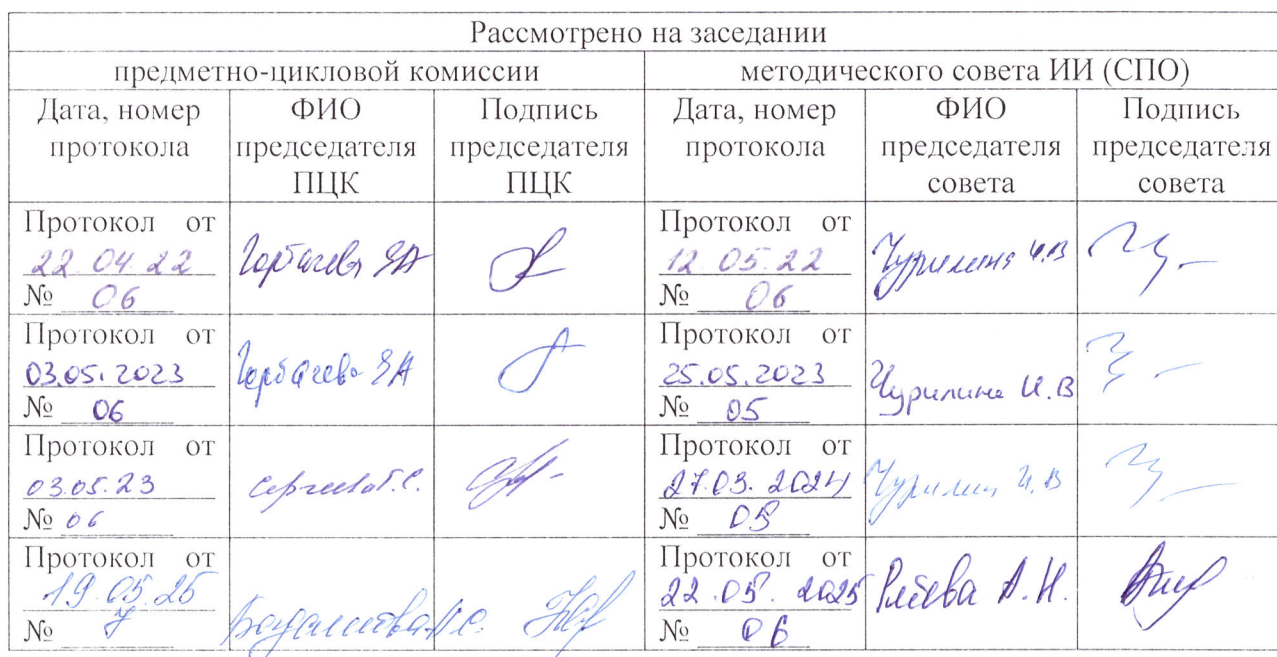 Рассмотрено на заседании
предметно-цикловой комиссии
методического совета ИИ (СПО)
Дата, номер протокола
ФИО председателя ПЦК
Подпись председателя ПЦК
Дата, номер протокола
ФИО председателя совета
Подпись председателя совета
Протокол от
22 04 22
№ 06
Горбачева ЯА
Протокол от
12 05.22
№ 06
Чурилина И.В
Протокол от
03.05.2023
№ 06
Горбачева ЯА
Протокол от
25.05.2023
№ 05
Чурилина И.В
Протокол от
03.05.23
№ 06
Сергеева Т.С.
Протокол от
27.03.2024
№ 05
Чурилина И.В
Протокол от
19.05.25
№ 7
Протокол от
22.05.2025
№ 06
А.Н.